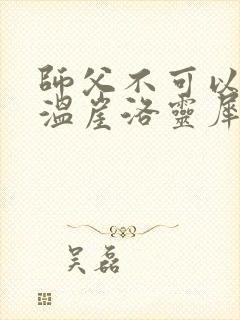 師父不可以
溫崖洛靈犀
吴磊